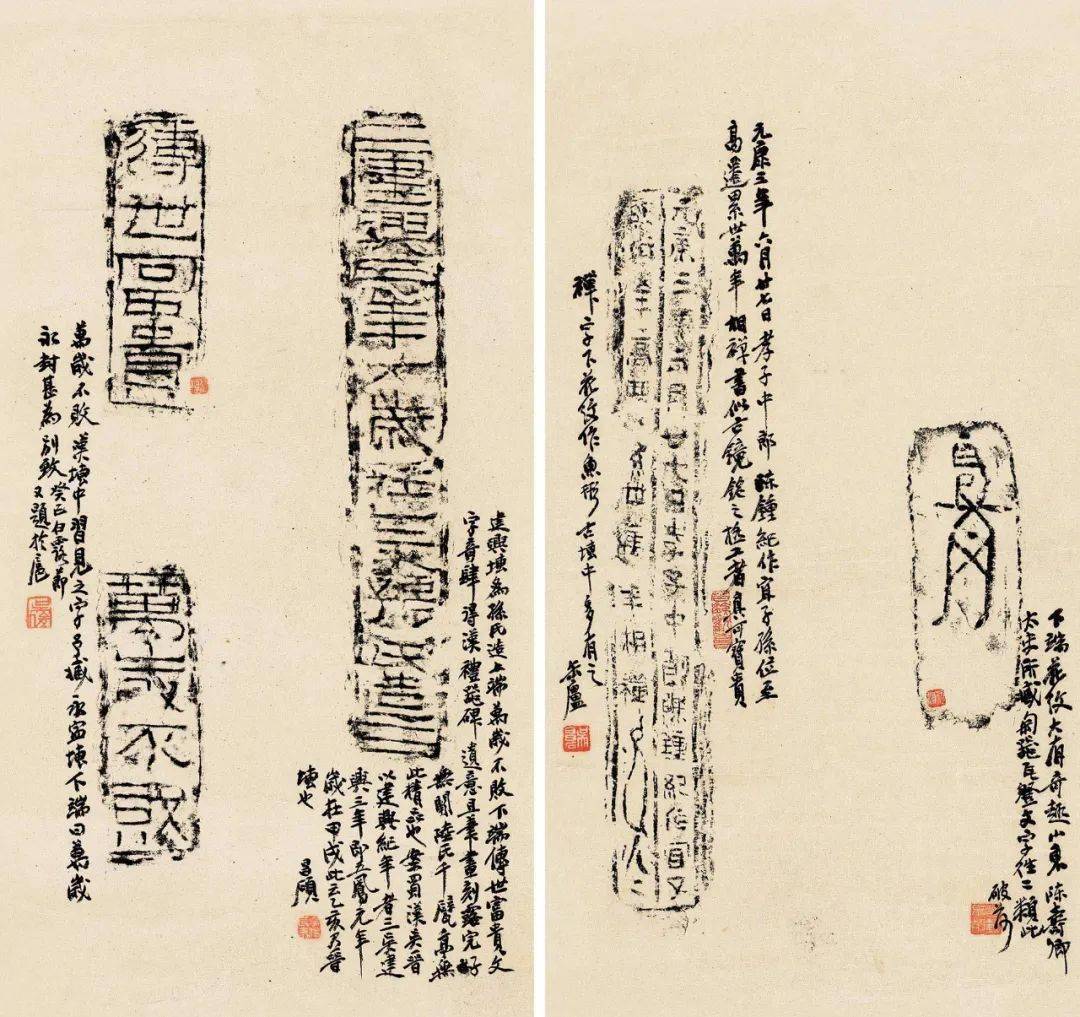 下端花紋大有奇趣山東陳壽卿
太史所藏匋器瓦甓文字往二類此
破荷
元康三年六月廿七日孝子中郎陳鍾紀作宜子孫位至
高遷累世萬年相禪書似古鏡銘之極工者真可寶貴
元康三年六月廿七日孝子中郎陳鍾紀作宜子
孫位至高遷累世萬年相禪
禪字下花紋作魚形古塼中多有之 缶廬
建興三年大歲在乙亥孫氏造
建興塼為孫氏造上端萬歲不敗下端傳世富貴文
字奇肆得漢禮器碑遺意且筆畫刻露完好
無闕陸氏千甓亭無
此精品也案蜀漢吳晉
以建興紀年者三吳建
興三年即五鳳元年
歲在甲戌此云乙亥乃晉
塼也 昌碩
傳世富貴
萬歲不敗
萬歲不敗漢塼中習見之字予藏永寧塼下端曰萬歲
永封甚為別致 癸丑白露節
又題於扈